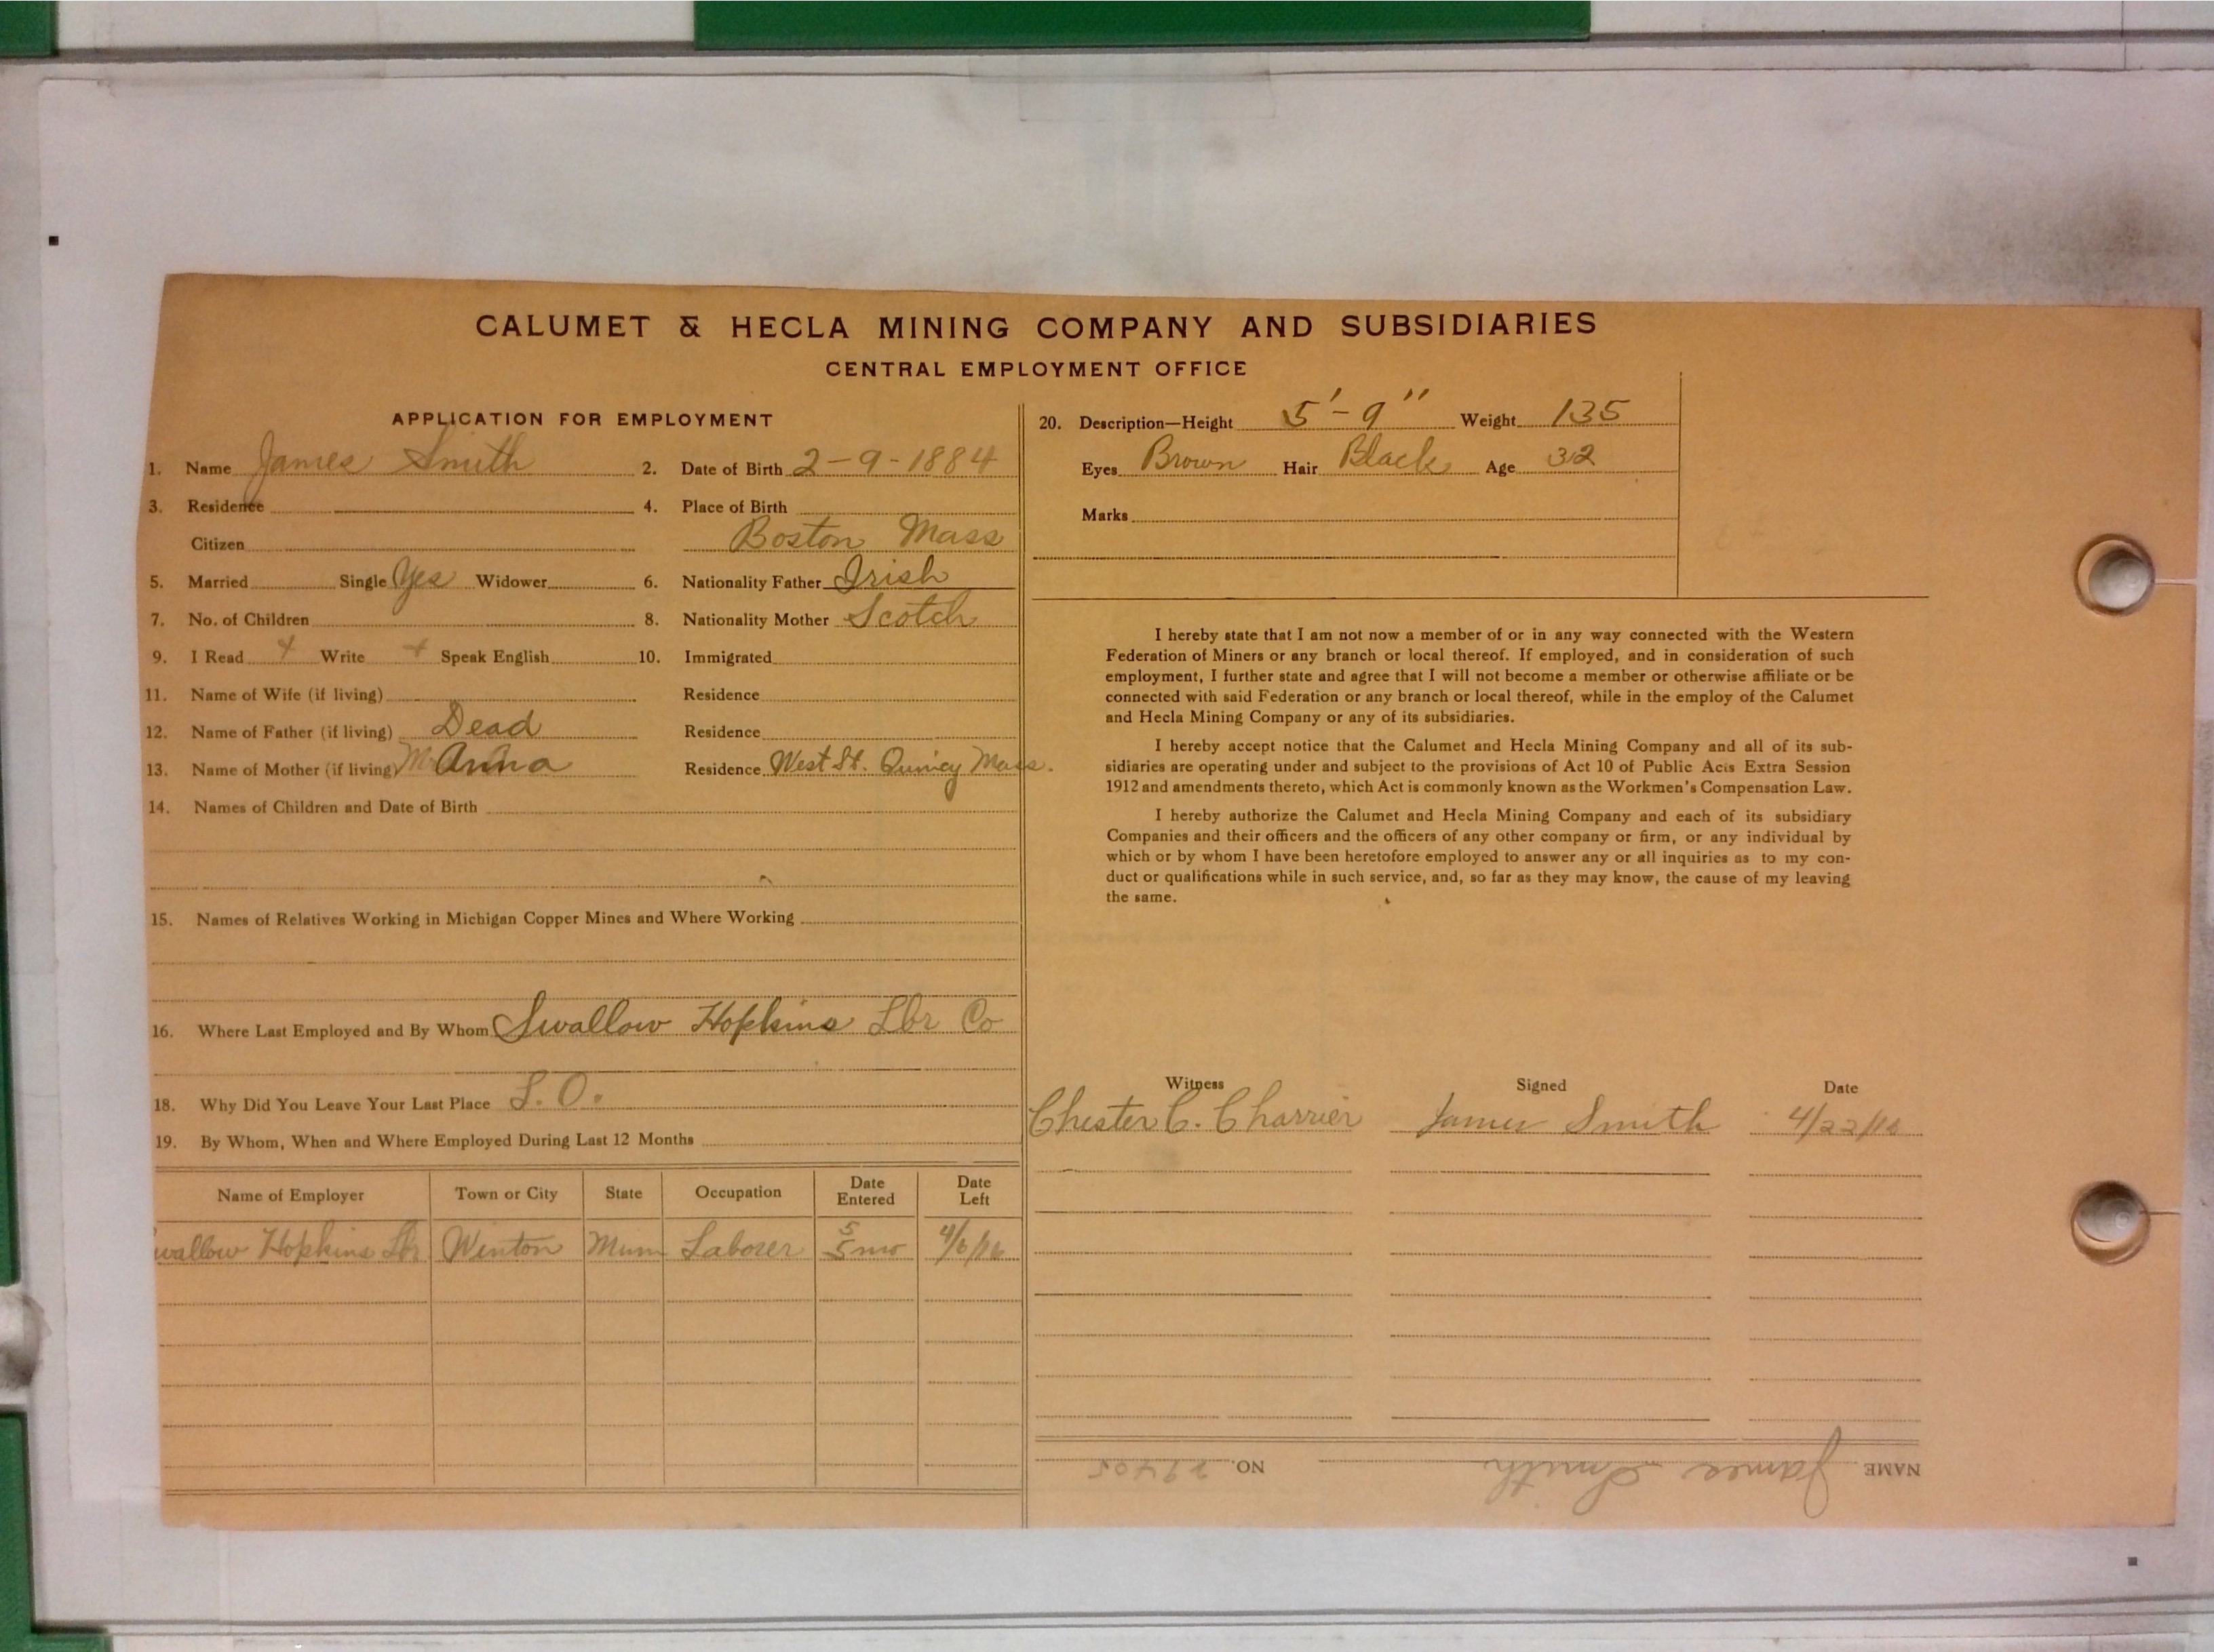 CALUMET & HECLA MINING COMPANY AND SUBSIDIARIES
CENTRAL EMPLOYMENT OFFICE
APPLICATION FOR EMPLOYMENT
1. Name James Smith 2. Date of Birth 2-9-1884
3. Residence 4. Place of Birth
Citizen Boston Mass
5. Married Single Yes Widower 6. Nationality Father Irish
7. No. of Children 8. Nationality Mother Scotch
9. I Read + Write + Speak English 10. Immigrated
11. Name of Wife (if living) Residence
12. Name of Father (if living) Dead Residence
13. Name of Mother (if living) Anna Residence West St. Quincy Mass.
14. Names of Children and Date of Birth
15. Names of Relatives Working in Michigan Copper Mines and Where Working
16. Where Last Employed and By Whom Swallow Hopkins Lbr Co
18. Why Did You Leave Your Last Place L.O.
19. By Whom, When and Where Employed During Last 12 Months
Name of Employer Town or City State Occupation Date Entered Date Left
wallow Hopkins Lbr Winton Minn Laborer 5 5 mo 4/6/16
20. Description—Height 5'-9" Weight 135
Eyes Brown Hair Black Age 32
Marks
I hereby state that I am not now a member of or in any way connected with the Western
Federation of Miners or any branch or local thereof. If employed, and in consideration of such
employment, I further state and agree that I will not become a member or otherwise affiliate or be
connected with said Federation or any branch or local thereof, while in the employ of the Calumet
and Hecla Mining Company or any of its subsidiaries.
I hereby accept notice that the Calumet and Hecla Mining Company and all of its sub-
sidiaries are operating under and subject to the provisions of Act 10 of Public Acts Extra Session
1912 and amendments thereto, which Act is commonly known as the Workmen's Compensation Law.
I hereby authorize the Calumet and Hecla Mining Company and each of its subsidiary
Companies and their officers and the officers of any other company or firm, or any individual by
which or by whom I have been heretofore employed to answer any or all inquiries as to my con-
duct or qualifications while in such service, and, so far as they may know, the cause of my leaving
the same.
Witness Signed Date
Chester C. Charrier James Smith 4/22/16
NAME James Smith NO. 29405